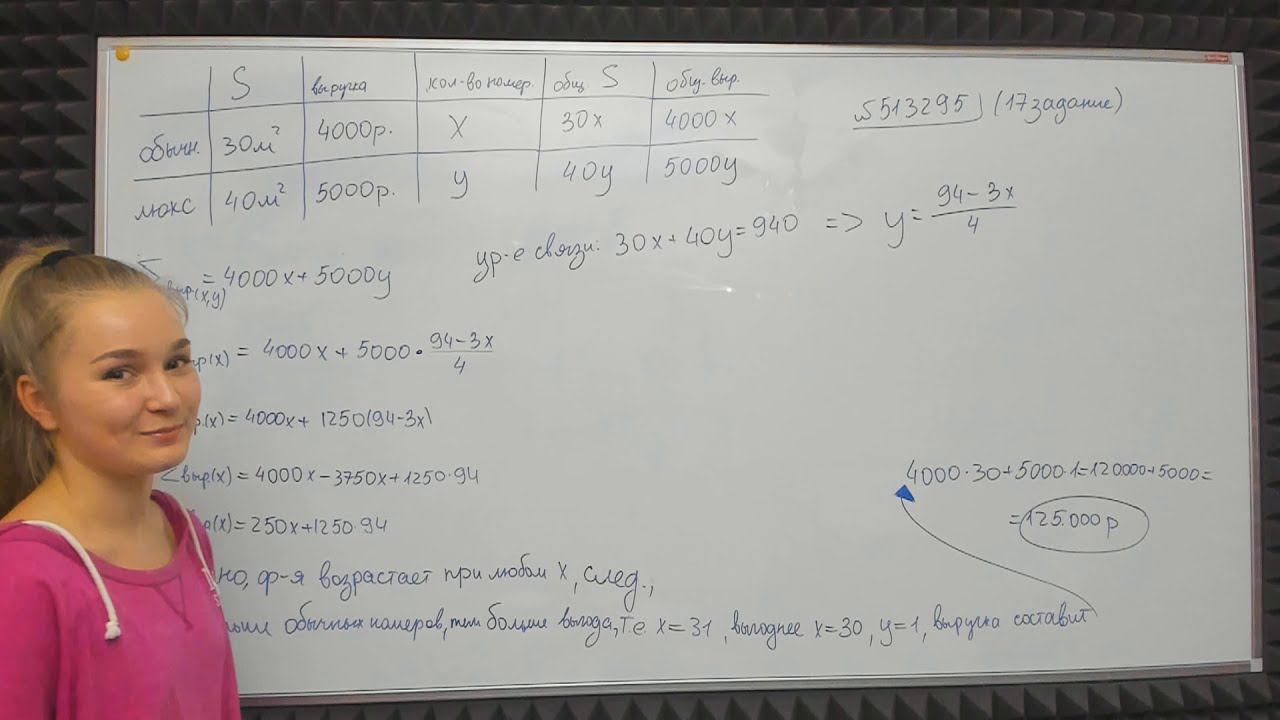 S выручка кол-во номер. общ. S общ. выр.
обычн. 30м² 4000р. X 30x 4000x
люкс 40м² 5000р. y 40y 5000y
№513295 (17 задание)
ур-е связи: 30x + 40y = 940 => y = (94-3x)/4
Σ выр(x,y) = 4000x + 5000y
р(x) = 4000x + 5000 · (94-3x)/4
р.(x) = 4000x + 1250(94-3x)
Σ выр(x) = 4000x - 3750x + 1250·94
р(x) = 250x + 1250·94
но, ф-я возрастает при любом X, след.,
обычных номеров, тем больше выгода, т.е. x=31, выгоднее x=30, y=1, выручка составит
4000·30+5000·1=120000+5000=
=125.000р